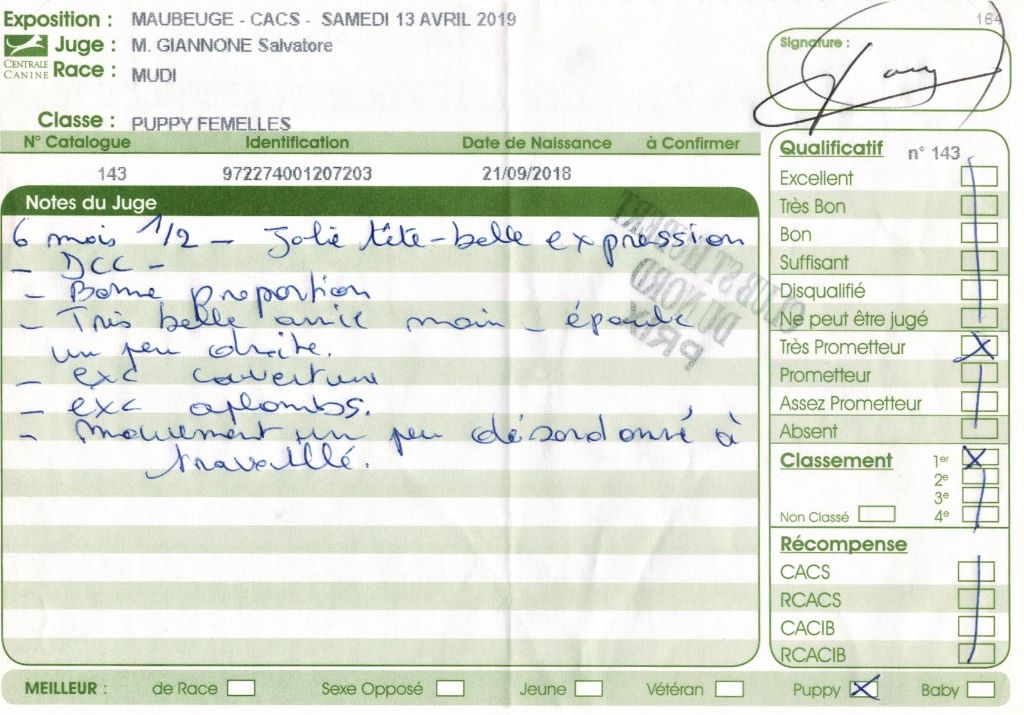 Exposition : MAUBEUGE - CACS - SAMEDI 13 AVRIL 2019
164
Juge : M. GIANNONE Salvatore
CENTRALE CANINE
Race : MUDI
Signature :
Classe : PUPPY FEMELLES
N° Catalogue Identification Date de Naissance à Confirmer
143 972274001207203 21/09/2018
Notes du Juge
6 mois 1/2 - Jolie tête - belle expression
- DCC -
- Bonne proportion
- Très belle main - épaule
un peu droite.
- exc couverture
- exc aplombs.
- Mouvement un peu désordonné à
travaillé.
CLUB ST HUBERT
DU NORD
PRIX
Qualificatif n° 143
Excellent
Très Bon
Bon
Suffisant
Disqualifié
Ne peut être jugé
Très Prometteur X
Prometteur
Assez Prometteur
Absent
Classement 1er X
2e
3e
Non Classé 4e
Récompense
CACS
RCACS
CACIB
RCACIB
MEILLEUR : de Race Sexe Opposé Jeune Vétéran Puppy X Baby